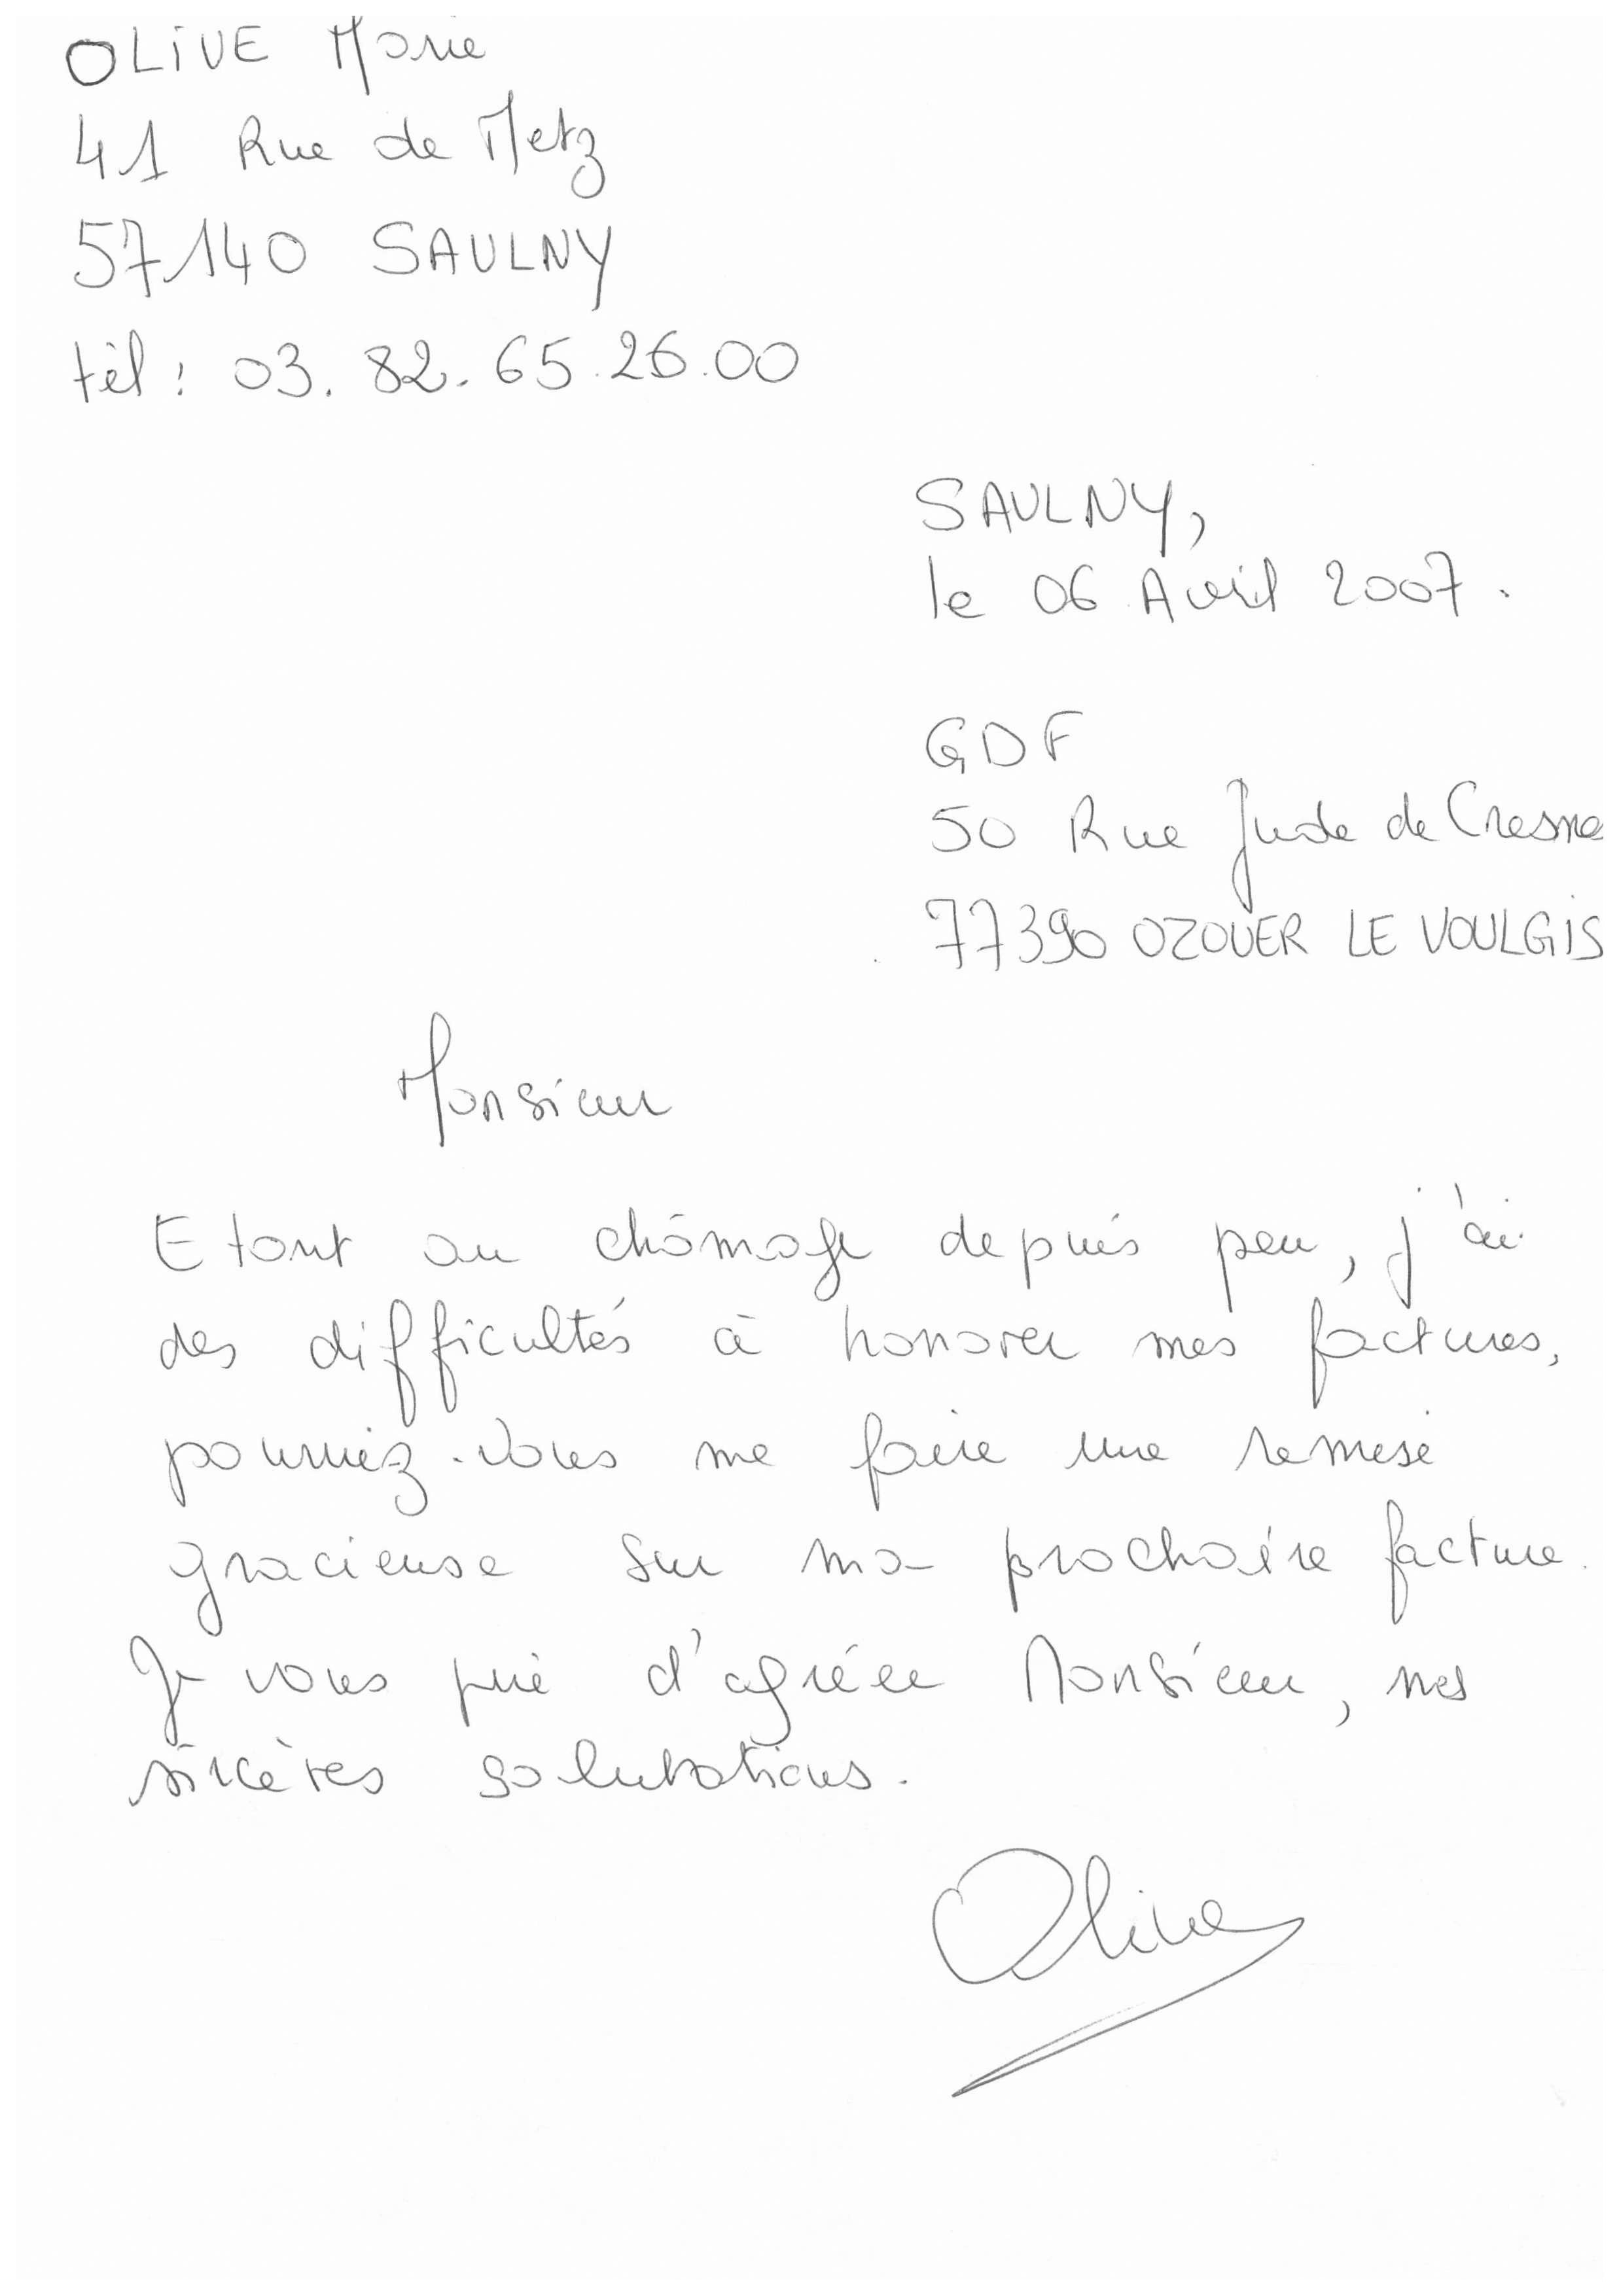 OLIVE Marie
41 Rue de Metz
57140 SAULNY
tèl : 03.82.65.26.00
SAULNY,
le 06 Avril 2007.
GDF
50 Rue Jude de Cresne
77390 OZOUER LE VOULGIS
Monsieur
Etant au chômage depuis peu, j'ai
des difficultés à honorer mes factures,
pourriez-vous me faire une remise
gracieuse sur ma prochaine facture.
Je vous prie d'agréer Monsieur, mes
sincères salutations.
Olive